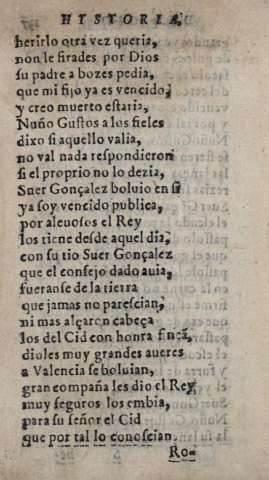 HYSTORIA.
herirlo otra vez queria,
non le firades por Dios
su padre a bozes pedia,
que mi fijo ya es vencido,
y creo muerto estaria,
Nuño Gustos a los fieles
dixo si aquello valia,
no val nada respondieron
si el proprio no lo dezia,
Suer Gonçalez boluio en si
ya soy vencido publica,
por aleuosos el Rey
los tiene desde aquel dia,
con su tio Suer Gonçalez
que el consejo dado auia,
fueranse de la tierra
que jamas no parescian,
ni mas alçaron cabeça
los del Cid con honra fincã,
dioles muy grandes aueres
a Valencia se boluian,
gran compaña les dio el Rey
muy seguros los embia,
para su señor el Cid
que por tal lo conoscian.
Ro-